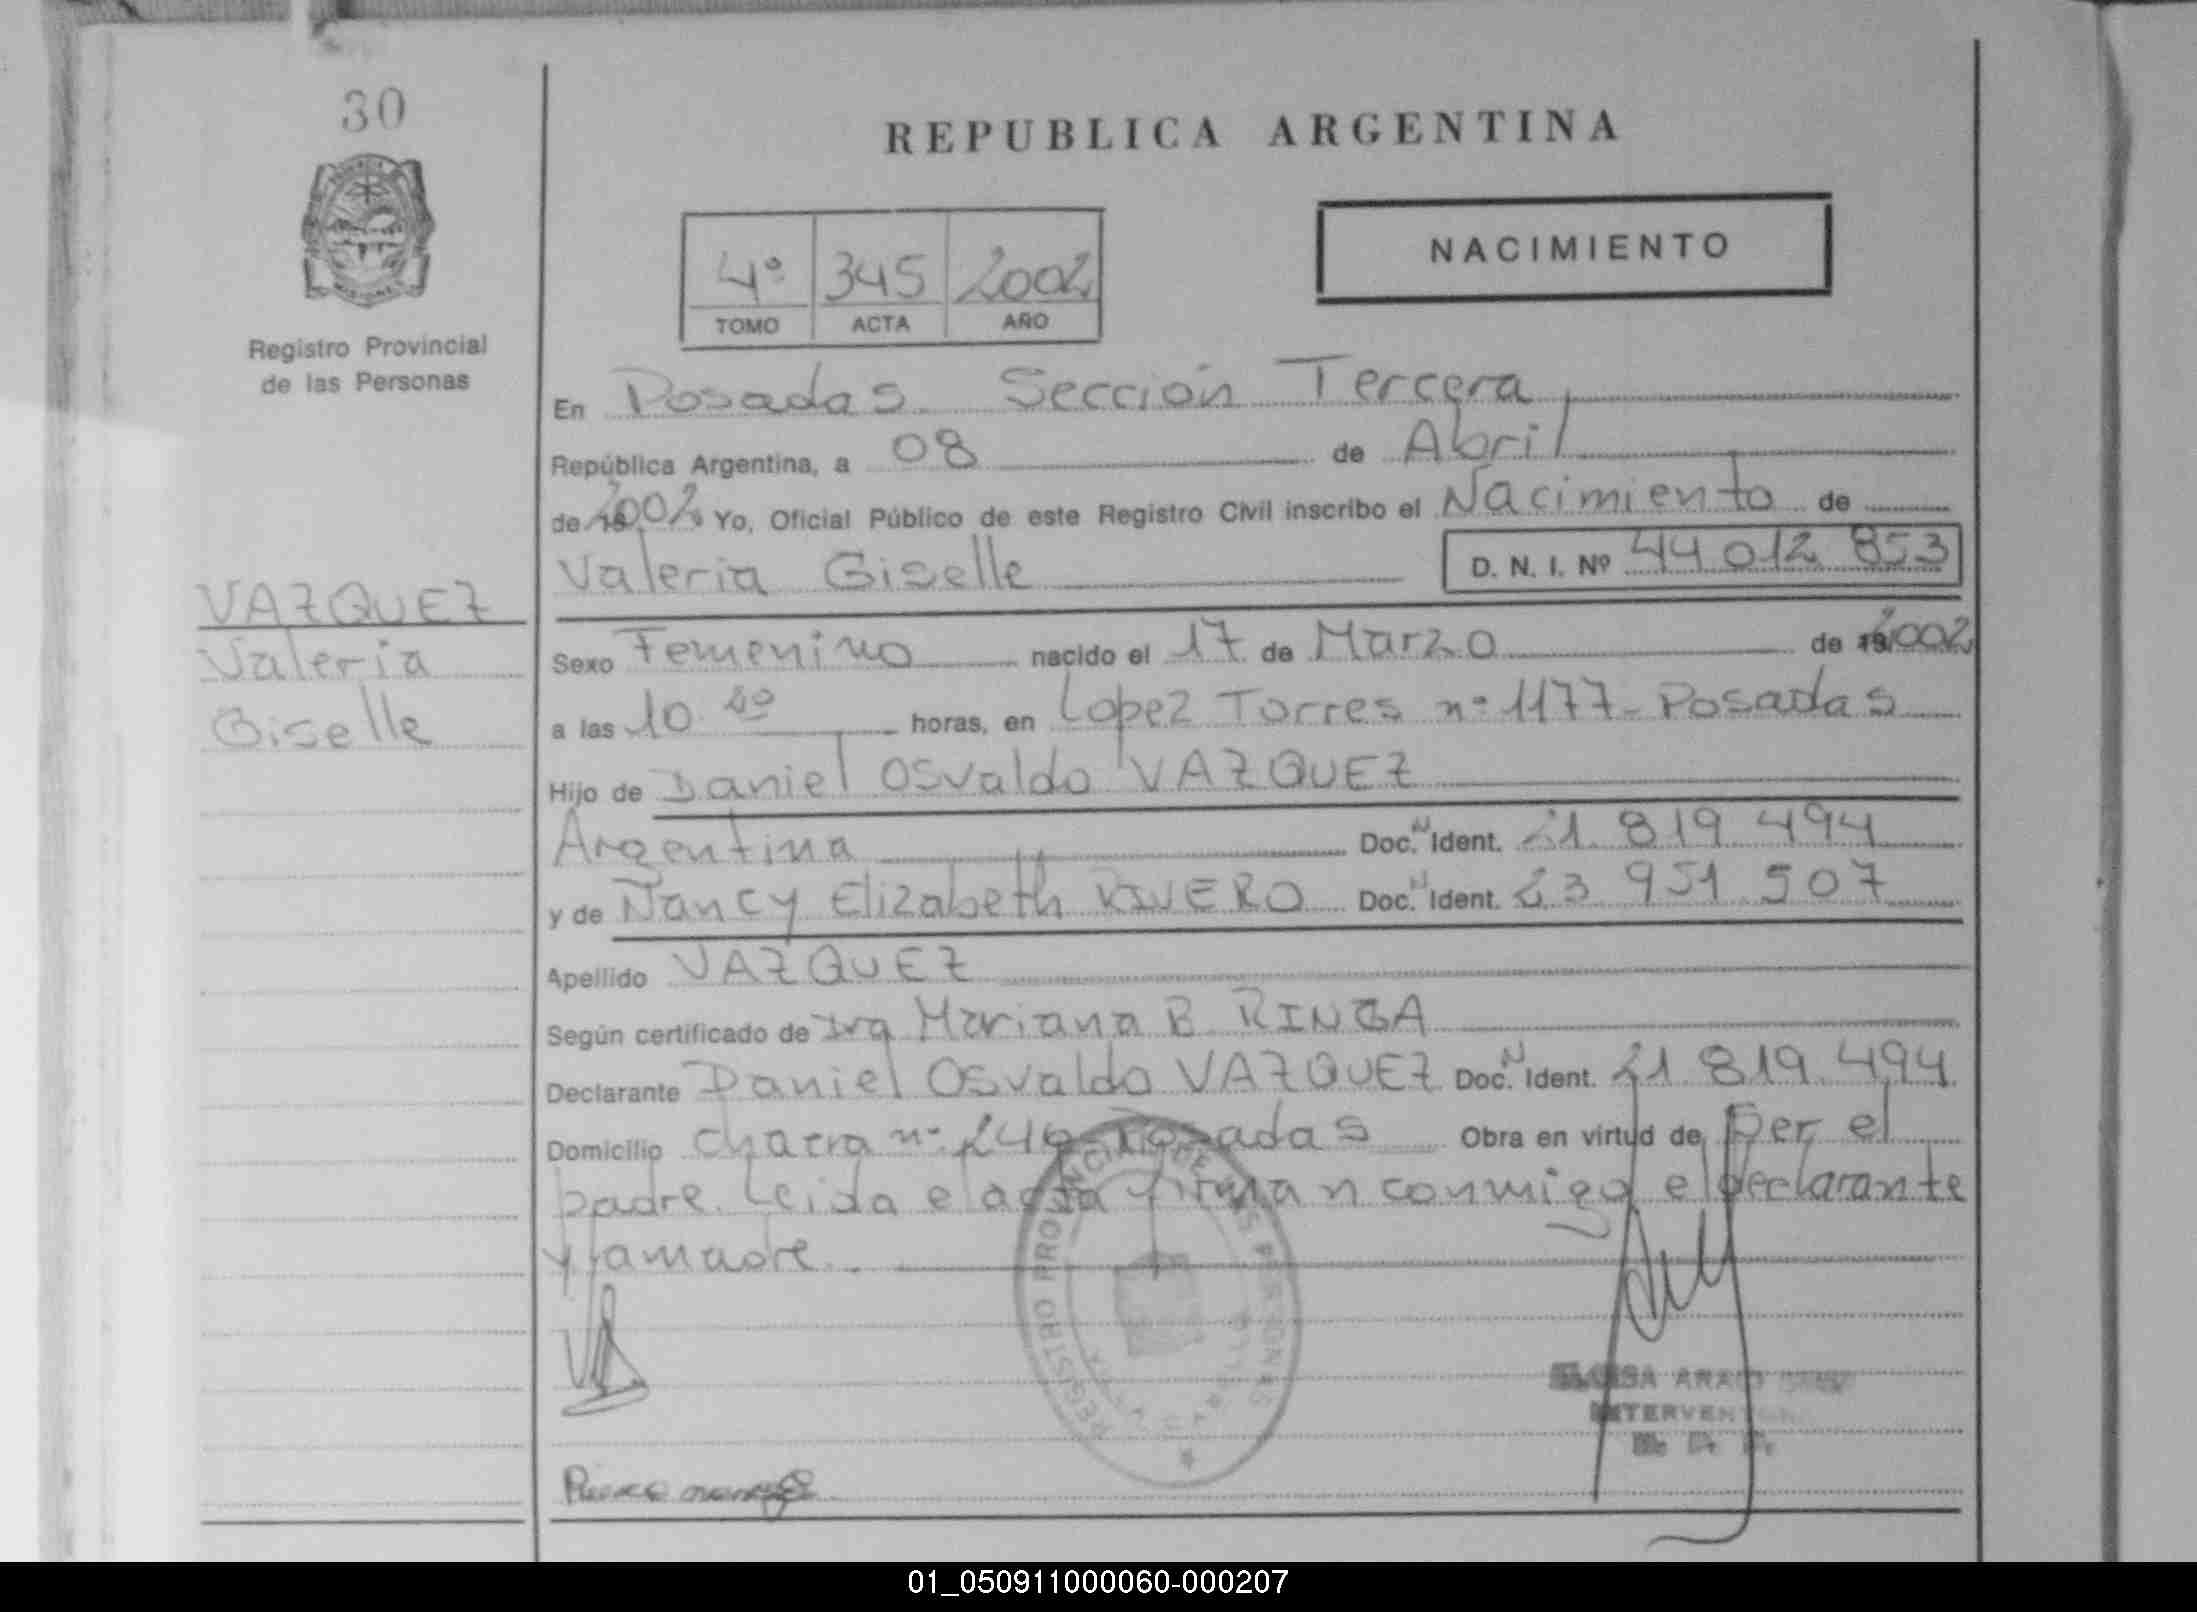 30
REPUBLICA ARGENTINA
NACIMIENTO
4º 345 2002
TOMO ACTA AÑO
Registro Provincial
de las Personas
En Posadas Sección Tercera
República Argentina, a 08 de Abril
de 2002 Yo, Oficial Público de este Registro Civil inscribo el Nacimiento de
Valeria Giselle D. N. I. Nº 44 012 853
VAZQUEZ
Valeria
Giselle
Sexo Femenino nacido el 17 de Marzo de 2002
a las 10 horas, en Lopez Torres nº 1177 - Posadas
Hijo de Daniel Osvaldo VAZQUEZ
Argentina Doc. N Ident. 21 819 494
y de Nancy Elizabeth RIVERO Doc. N Ident. 23 951 507
Apellido VAZQUEZ
Según certificado de Dra Mariana B RINGA
Declarante Daniel Osvaldo VAZQUEZ Doc. N Ident. 21 819 494
Domicilio chacra nº 246 Posadas Obra en virtud de Ser el
padre. Leida el acta firman conmigo el declarante
y la madre.
REGISTRO PROVINCIAL DE LAS PERSONAS
01_050911000060-000207